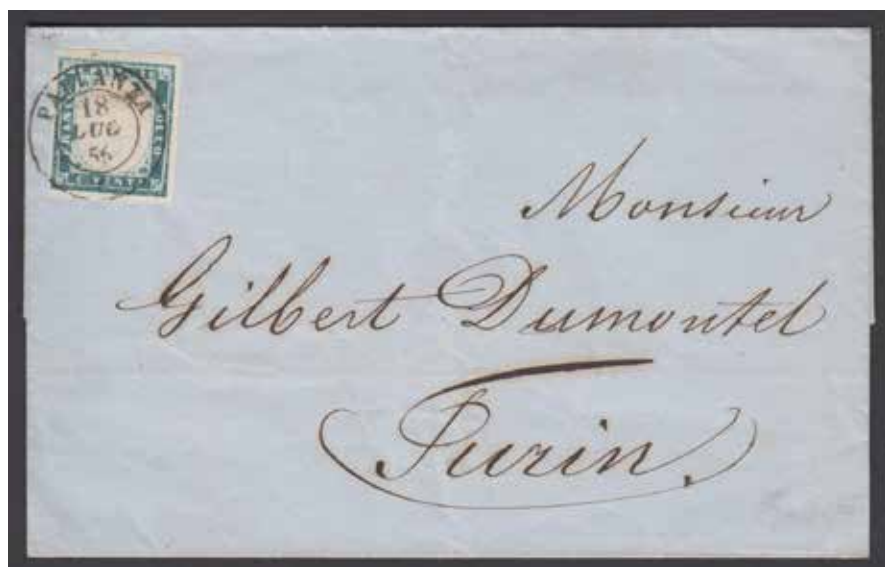 PALLANZA
18
LUG
56
Monsieur
Gilbert Dumontel
Turin.